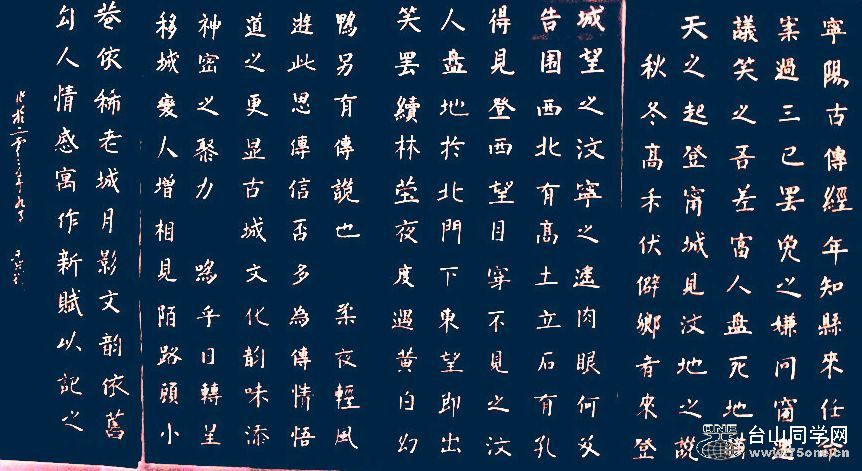 寧陽古傳經年知縣來任命
案過三已罷免之嫌問甯
議笑之吾差富人盤死地
天之起登甯城見汶地之說
秋冬高禾伏僻鄉者來登
城望之汶寧之遠肉眼何及
告围西北有高土立石有孔
得見登西望目穿不見之汶
人盘地於北門下東望即出
笑罢續林莹夜度過黄白幻
鸭另有傳說也 柔夜輕風
遊此思傳信否多為傳情悟
道之更显古城文化韵味添
神密之聚力 嗚乎日轉呈
移城变人增相見陌路頭小
巷依稀老城月影文韵依舊
勾人情感寓作新賦以記之
台山同学网
www.tsone.cn
ONE